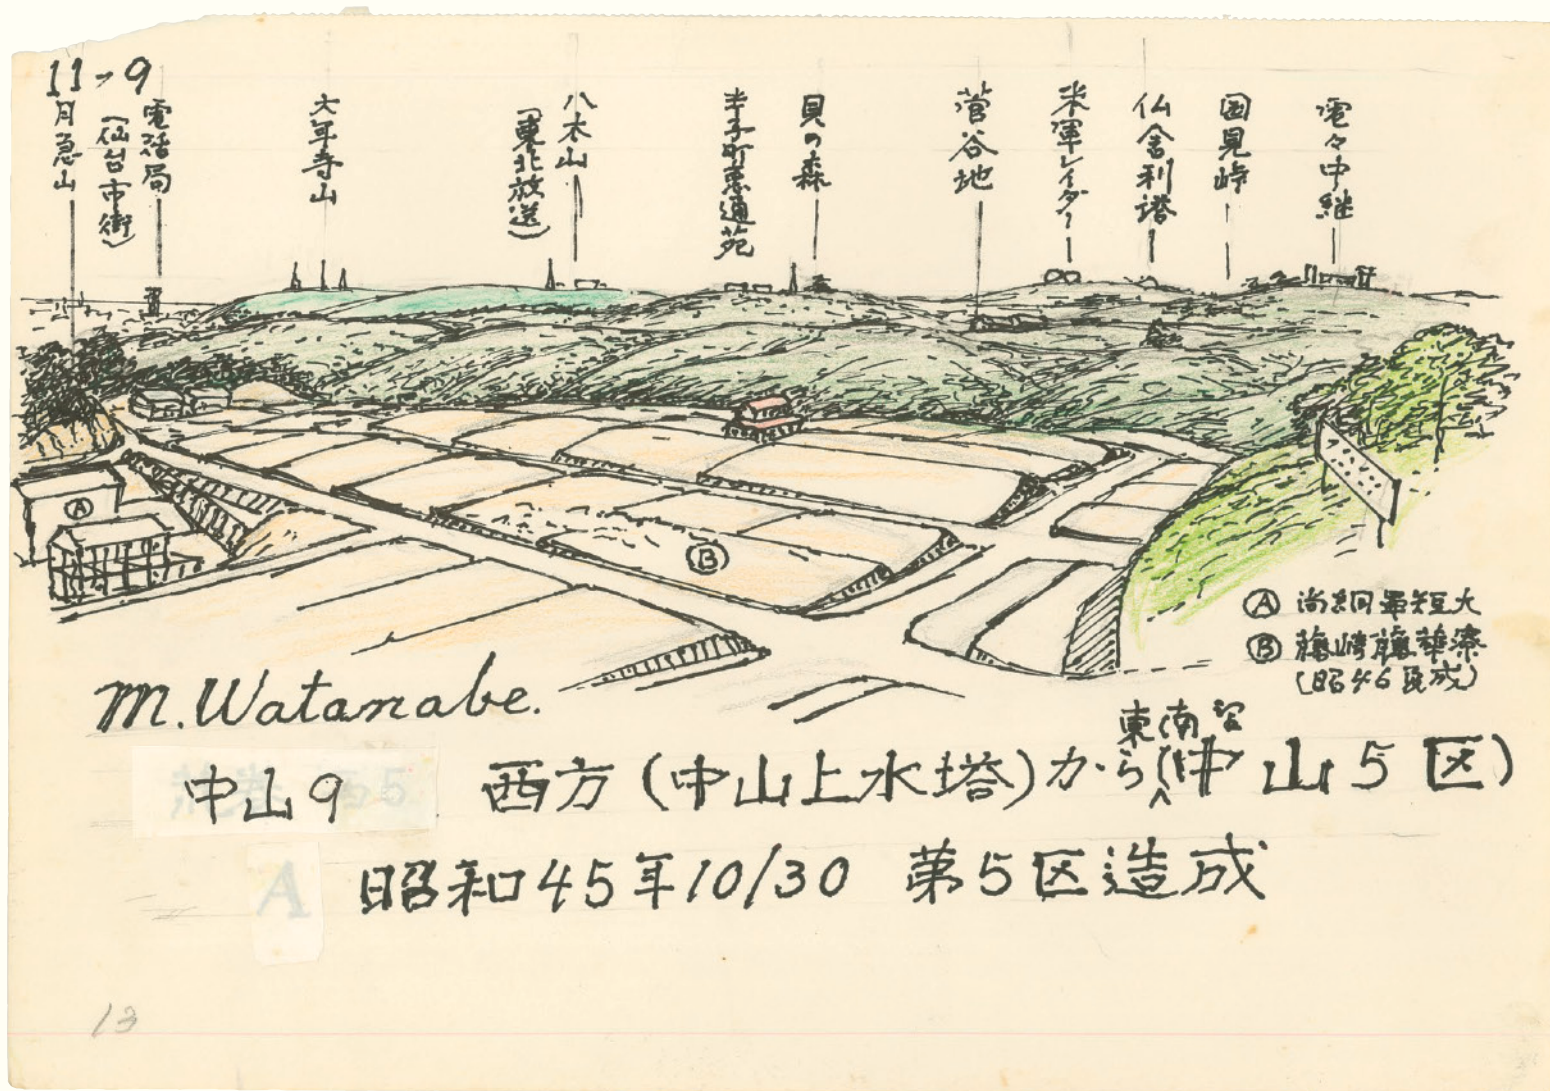 11→9
月急山
(仙台市街)
電話局
大年寺山
(東北放送)
八木山
半子町恵通苑
貝の森
菅谷地
米軍レイダー
仏舎利塔
国見峠
電々中継
Ⓐ
Ⓑ
Ⓐ 尚絅短大
Ⓑ 藤崎藤華寮
(昭46完成)
M. Watanabe.
東南
中山9 西方(中山上水塔)から(中山5区)
A 昭和45年10/30 第5区造成
13